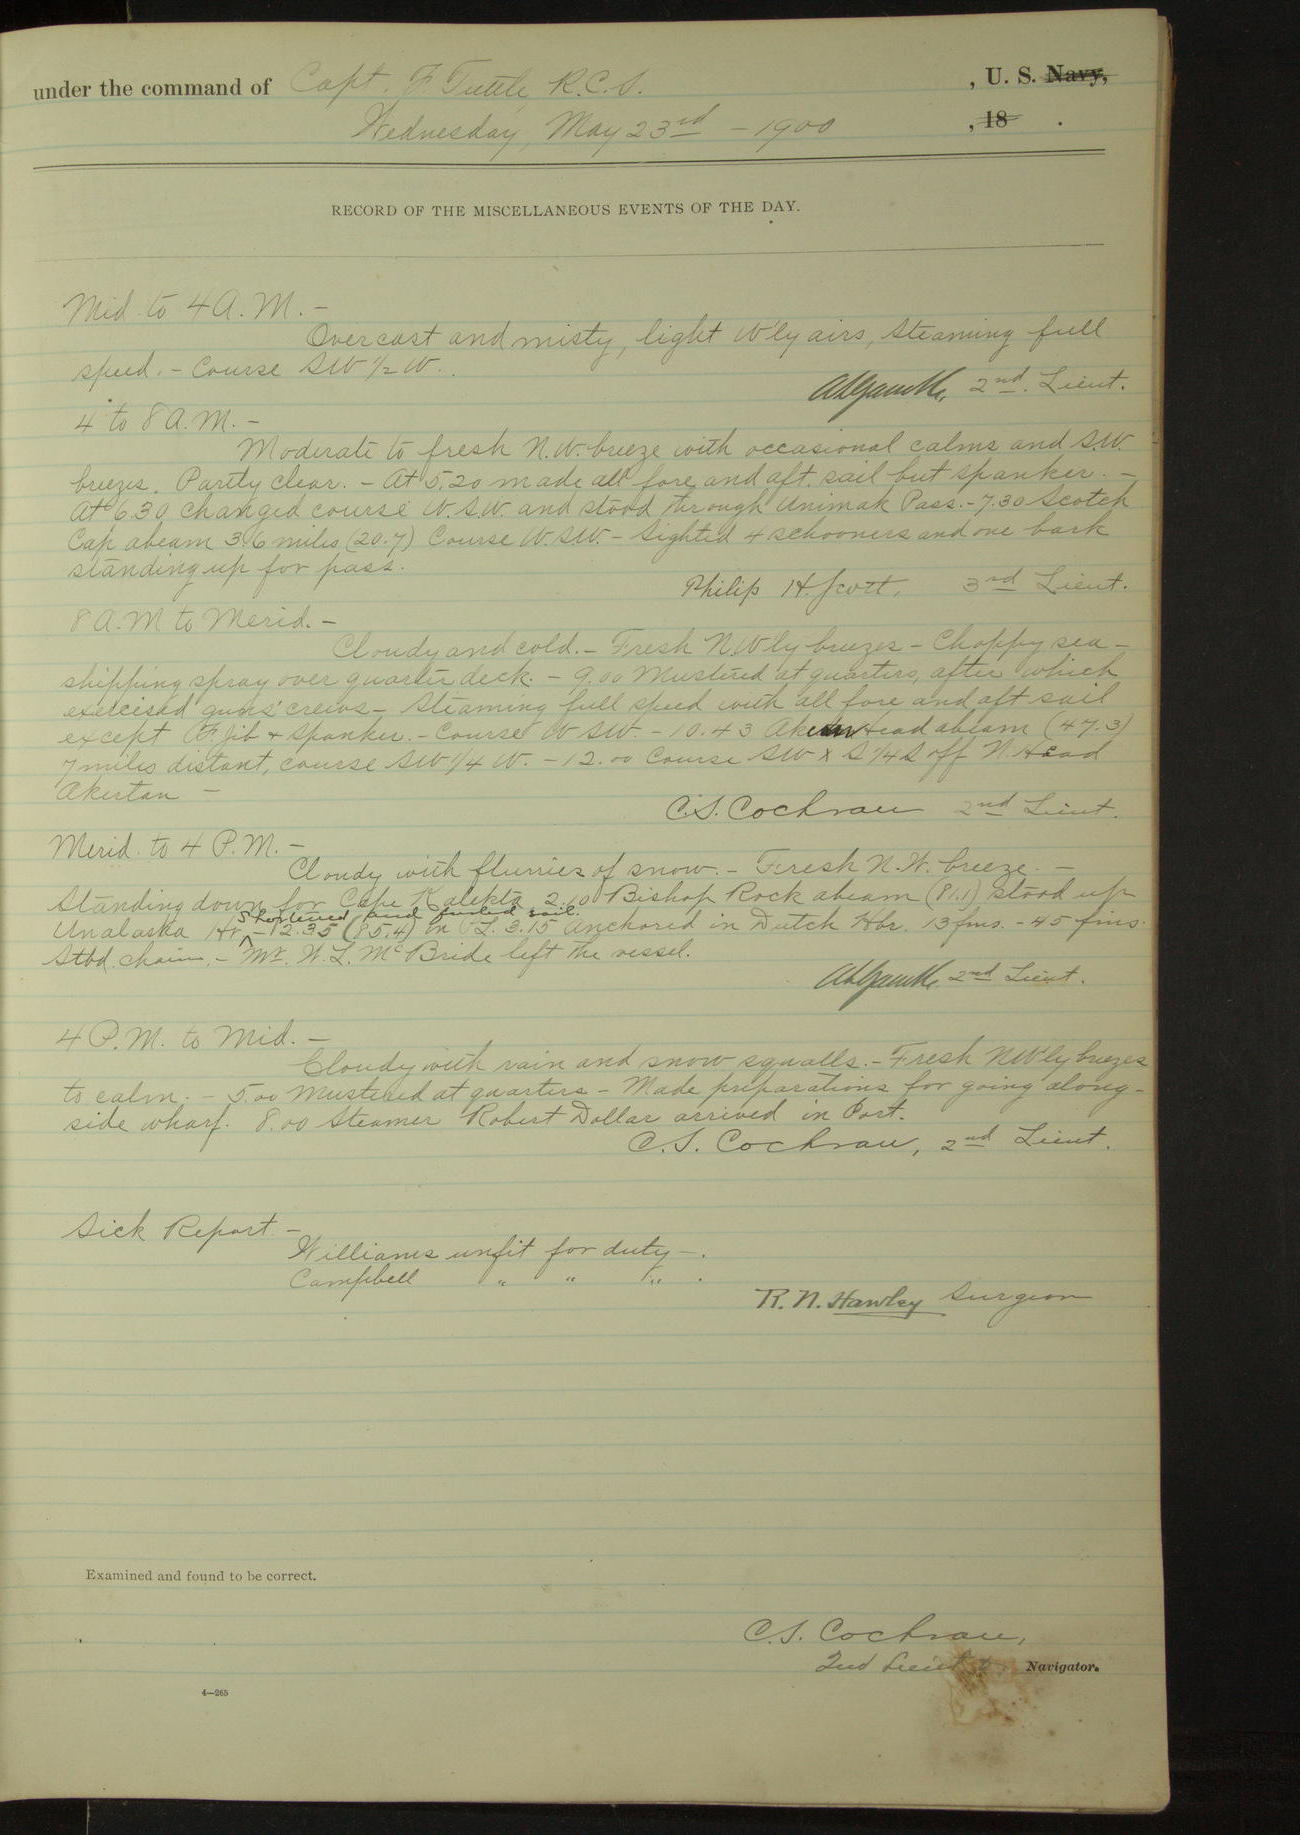 under the command of Capt. F. Tuttle, R.C.S. , U. S. Navy,
Wednesday, May 23rd - 1900 , 18 .
RECORD OF THE MISCELLANEOUS EVENTS OF THE DAY.
Mid to 4 A.M. -
Overcast and misty, light W'ly airs, Steaming full
speed. - Course SW 1/2 W.
2nd. Lieut.
4 to 8 A.M. -
Moderate to fresh N.W. breeze with occasional calms and S.W.
breezes. Partly clear. - At 5.20 made all fore and aft. sail but spanker. -
At 6.30 changed course W.S.W. and stood through Unimak Pass. - 7.30 Scotch
Cap abeam 3.6 miles (20.7) Course W.SW. - Sighted 4 schooners and one bark
standing up for pass.
Philip H. Scott, 3rd Lieut.
8 A.M to Merid. -
Cloudy and cold. - Fresh N.W'ly breezes - Choppy sea -
shipping spray over quarter deck. - 9.00 Mustered at quarters, after which
exercised guns' crews - Steaming full speed with all fore and aft sail
except F. jib & Spanker. - Course W SW. - 10.43 Akun Head abeam (47.3)
7 miles distant, course SW 1/4 W. - 12.00 Course SW x S 1/4 S off N. Head
Akutan -
C.S. Cochran 2nd Lieut.
Merid. to 4 P.M. -
Cloudy with flurries of snow. - Fresh N.W. breeze. -
Standing down for Cape Kalekta 2.10 Bishop Rock abeam (81.1) stood up
Shortened and furled sail.
Unalaska Hr. - 2.35 (85.4) In P.L. 3.15 Anchored in Dutch Hbr. 13 fms. - 45 fms.
Stbd. chain. - Mr. W. L. McBride left the vessel.
2nd Lieut.
4 P.M. to Mid. -
Cloudy with rain and snow squalls. - Fresh NW'ly breezes
to calm. - 5.00 Mustered at quarters - Made preparations for going along-
side wharf. 8.00 Steamer Robert Dollar arrived in Port.
C. S. Cochran, 2nd Lieut.
Sick Report. -
Williams unfit for duty - .
Campbell " " " .
R. N. Hawley Surgeon
Examined and found to be correct.
C. S. Cochran,
2nd Lieut Navigator.
4—265